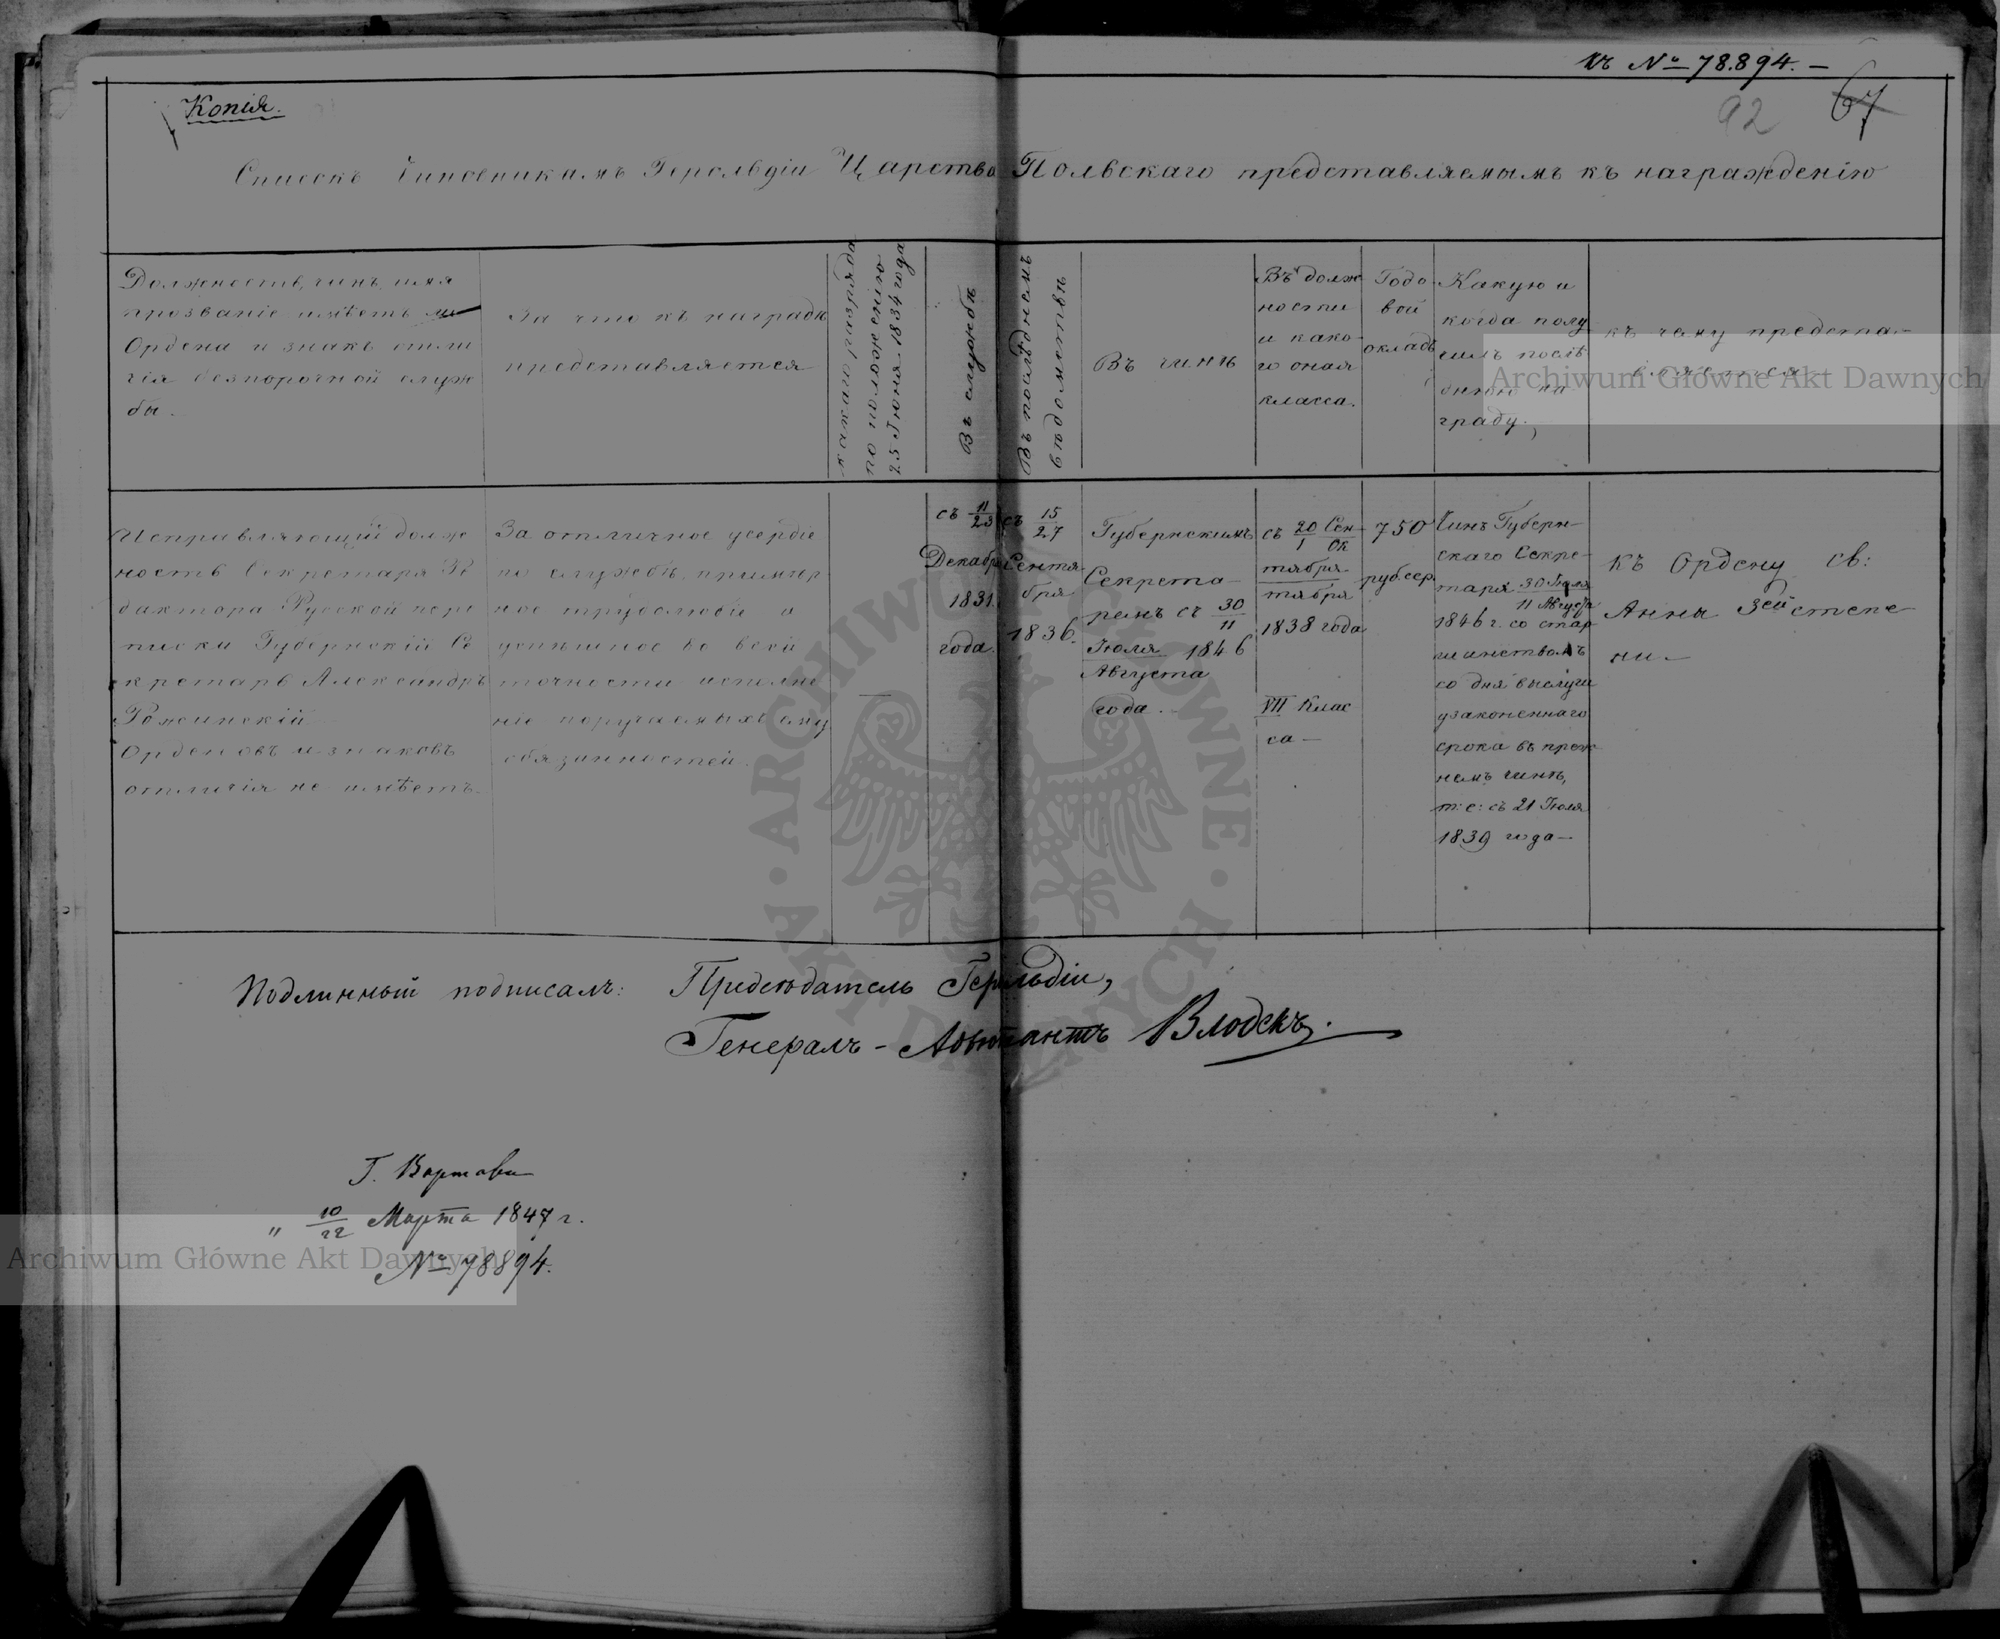 къ № 78.894. —
92 67
Копія.
Списокъ Чиновникамъ Герольдіи Царства Польскаго представляемымъ къ награжденію
Должность, чинъ, имя
прозваніе имѣетъ ли
Ордена и знакъ отли
чія безпорочной служ
бы.
За что къ наградѣ
представляется
по положенію
25 Іюня 1834 года
Въ службѣ
Въ послѣднемъ
вѣдомствѣ
Въ чинѣ
Въ долж
ности
и како-
го оная
класса.
Годо
вой
окладъ
Какую и
когда полу
чилъ послѣ
днюю на
граду.
къ чему предста-
вляется
Исправляющій долж
ность Секретаря Ре
дактора Русской пере
писки Губернскій Се
кретарь Александръ
Орденовъ и знаковъ
отличія не имѣетъ.
За отличное усердіе
по службѣ, примѣр
ное трудолюбіе и
успѣшное во всей
точности исполне
ніе поручаемыхъ ему
обязанностей.
—
съ 11/23
Декабря
1831
года.
съ 15/27
Сентя
бря
1836.
Губернскимъ
Секрета
ремъ съ 30/11
Іюля 1846
Августа
года.
съ 20/1 Сен/Ок
тября
тября
1838 года
VII Клас
са —
750
руб.сер.
Чинъ Губерн-
скаго Секре-
таря 30 Іюля
11 Августа
1846 г. со стар
шинствомъ
со дня выслуги
узаконеннаго
срока въ преж
немъ чинѣ,
т: е: съ 21 Іюля
1839 года —
къ Ордену Св:
Анны 3ей степе
ни. —
Подлинный подписалъ: Предсѣдатель Герольдіи,
Генералъ-Адъютантъ Влодекъ.
Г. Варшава
" 10/22 Марта 1847 г.
№ 78894.
Archiwum Główne Akt Dawnych
Archiwum Główne Akt Dawnych
· ARCHIWUM GŁÓWNE · AKT DAWNYCH